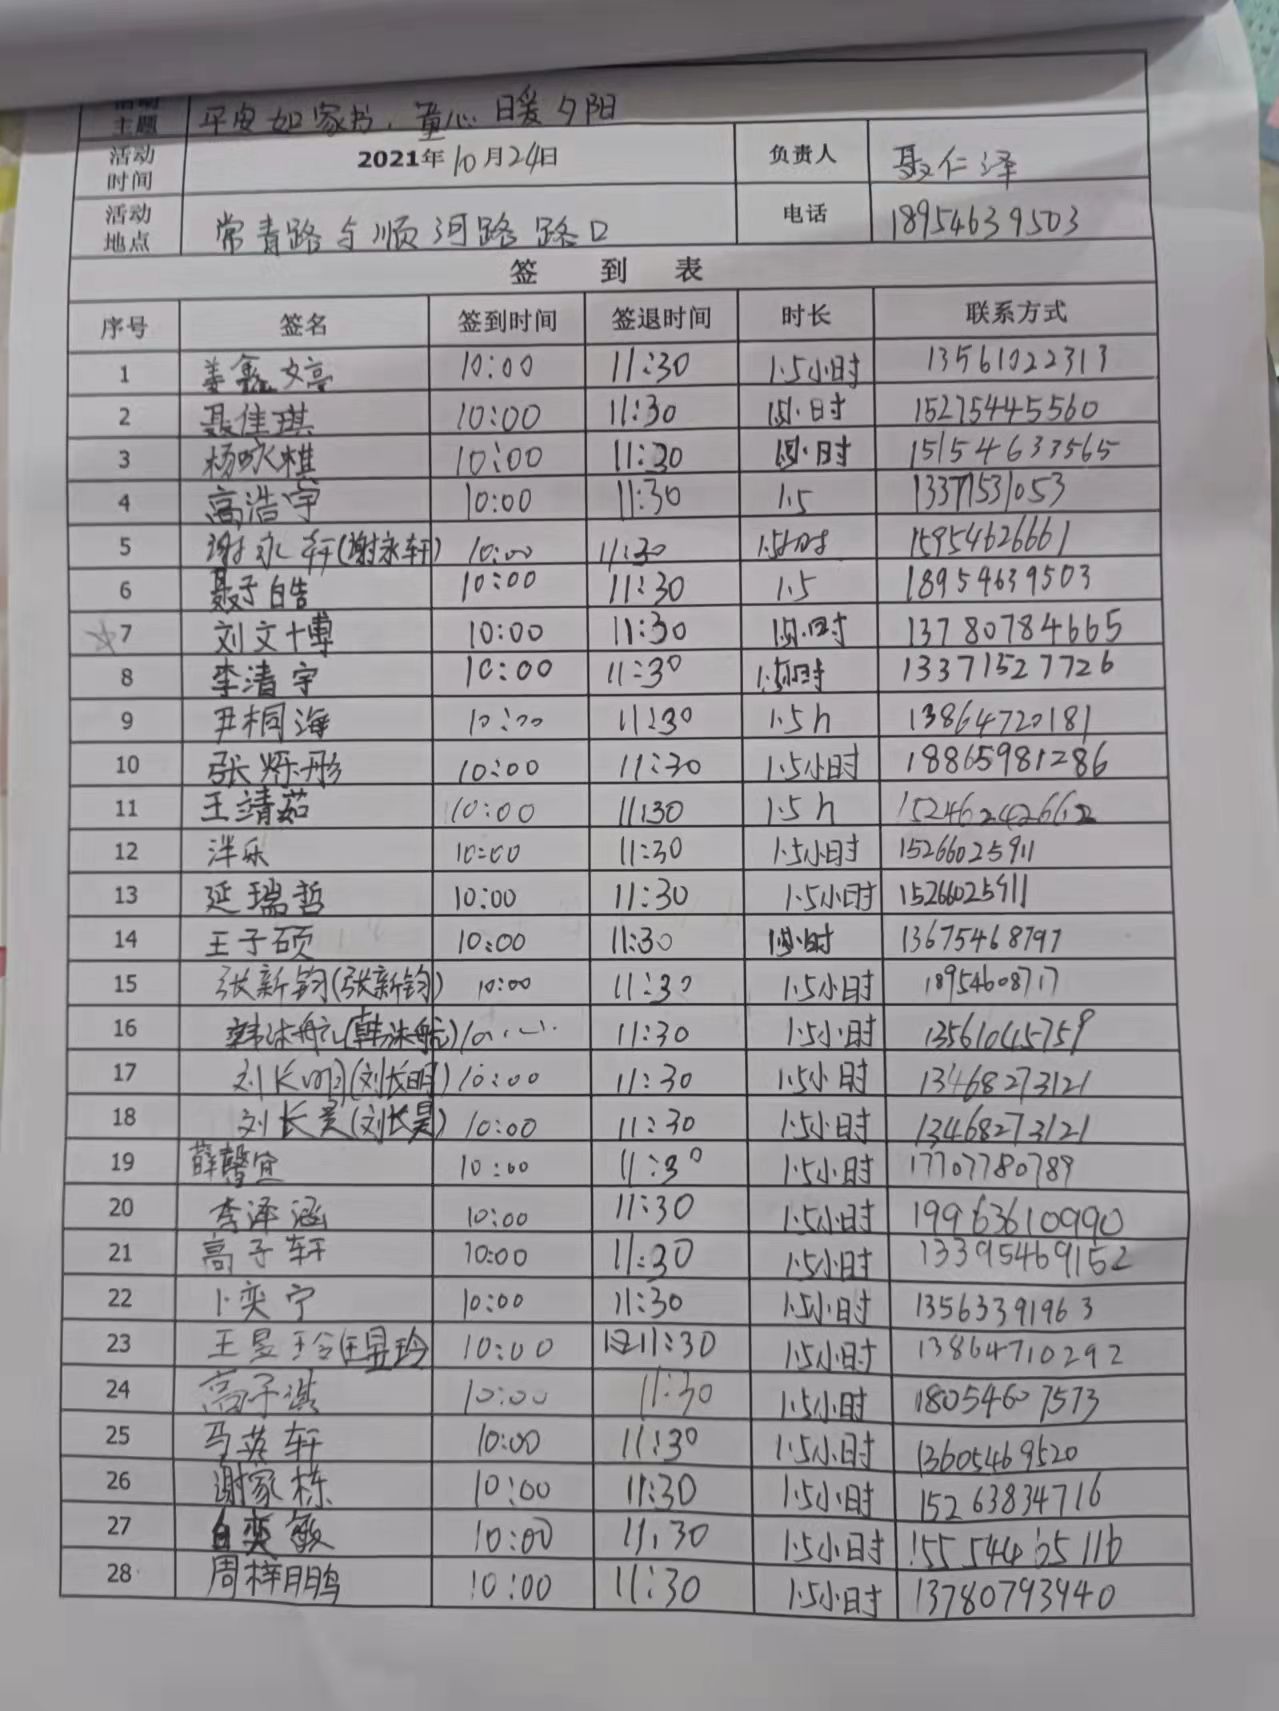 主题 平安如家书，童心暖夕阳
活动时间 2021年10月24日 负责人 聂仁泽
活动地点 常青路与顺河路路口 电话 18954639503
签 到 表
序号 签名 签到时间 签退时间 时长 联系方式
1 姜鑫婷 10:00 11:30 1.5小时 13561022313
2 聂佳琪 10:00 11:30 1.5小时 15275445560
3 杨咏棋 10:00 11:30 1.5小时 151554633565
4 高浩宇 10:00 11:30 1.5 13371531053
5 谢永轩(谢永轩) 10:00 11:30 1.5小时 15954626661
6 聂子皓 10:00 11:30 1.5 18954639503
7 刘文博 10:00 11:30 1.5小时 13780784665
8 李清宇 10:00 11:30 1.5小时 13371527726
9 尹桐海 10:00 11:30 1.5h 13864720181
10 张烁彤 10:00 11:30 1.5小时 18865981286
11 王靖茹 10:00 11:30 1.5h
12 洋乐 10:00 11:30 1.5小时 15266025911
13 延瑞哲 10:00 11:30 1.5小时 15266025911
14 王子硕 10:00 11:30 1.5小时 13675468797
15 张新钧(张新钧) 10:00 11:30 1.5小时 18954608717
16 韩沐航(韩沐航) 11:30 1.5小时 13561045759
17 刘长明(刘长明) 10:00 11:30 1.5小时 13468273121
18 刘长昊(刘长昊) 10:00 11:30 1.5小时 13468273121
19 薛馨宜 10:00 11:30 1.5小时 17707780789
20 李泽涵 10:00 11:30 1.5小时 19963610990
21 高子轩 10:00 11:30 1.5小时 13395469152
22 卜奕宁 10:00 11:30 1.5小时 13563391963
23 王昱玲(王昱玲) 10:00 11:30 1.5小时 13864710292
24 高子淇 10:00 11:30 1.5小时 18054607573
25 马英轩 10:00 11:30 1.5小时 13605469520
26 谢家栋 10:00 11:30 1.5小时 15263834716
27 白奕敏 10:00 11:30 1.5小时
28 周梓鹏 10:00 11:30 1.5小时 13780793940